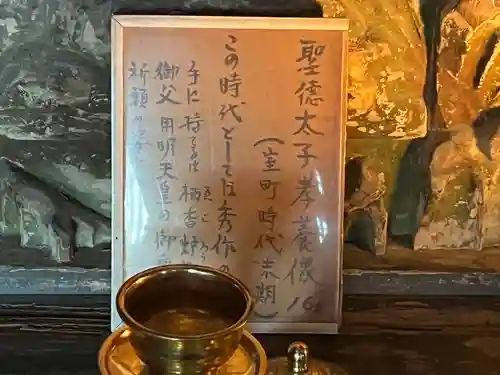 聖徳太子孝養像 16
(室町時代末期)
この時代としては秀作の
手に持てるは柄香炉
御父用明天皇の御
祈願